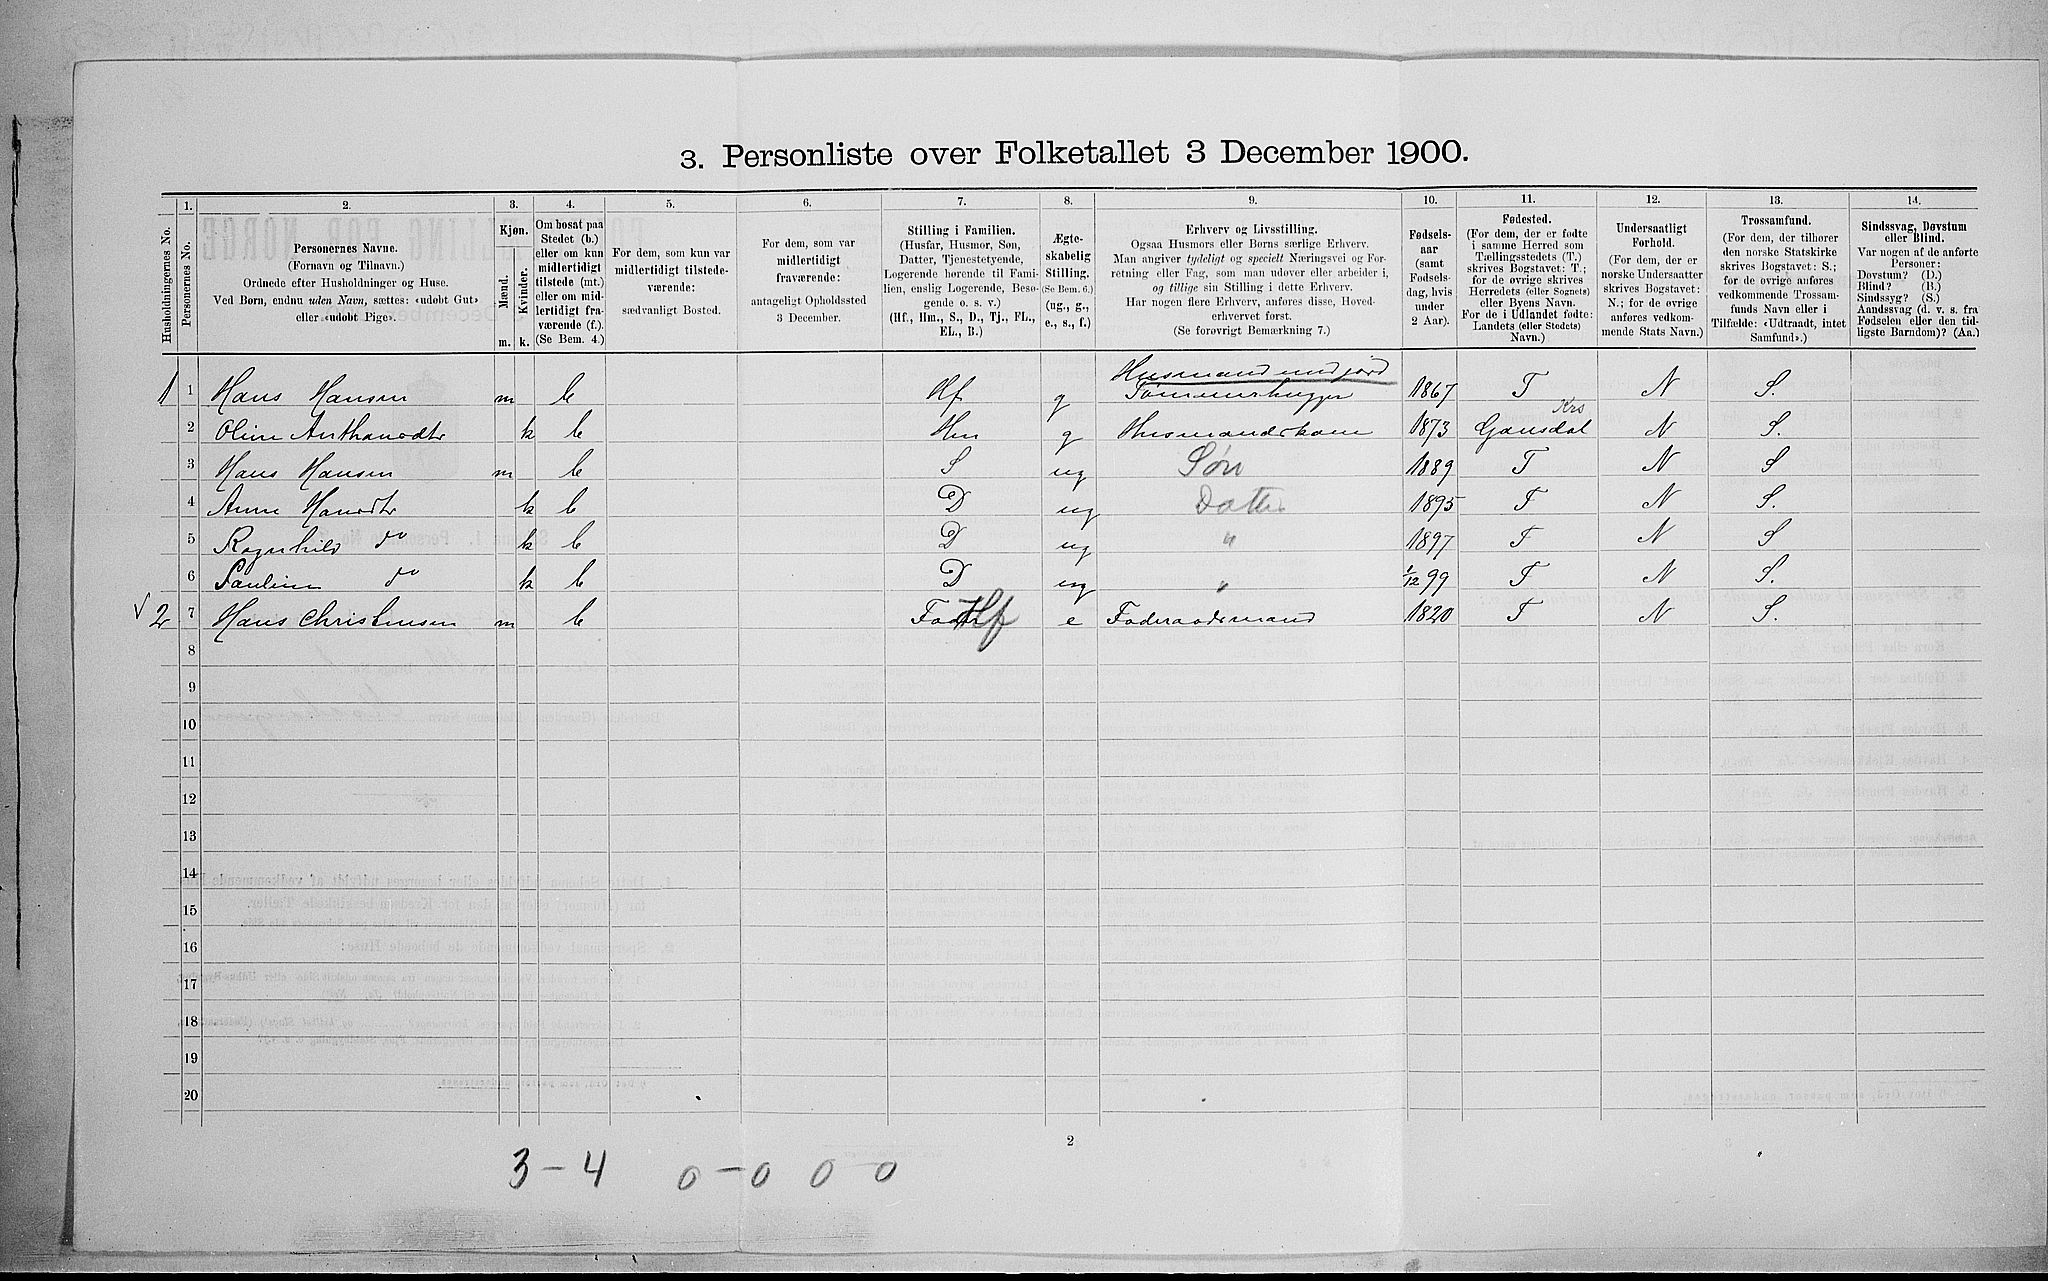 3. Personliste over Folketallet 3 December 1900.
Husholdningernes No.
1.
Personernes No.
2.
Personernes Navne.
(Fornavn og Tilnavn.)
Ordnede efter Husholdninger og Huse.
Ved Børn, endnu uden Navn, sættes: «udøbt Gut»
eller «udøbt Pige».
3.
Kjøn.
Mænd.
Kvinder.
m. k.
4.
Om bosat paa
Stedet (b.)
eller om kun
midlertidigt
tilstede (mt.)
eller om mid-
lertidigt fra-
værende (f.).
(Se Bem. 4.)
5.
For dem, som kun var
midlertidigt tilstede-
værende:
sædvanligt Bosted.
6.
For dem, som var
midlertidigt
fraværende:
antageligt Opholdssted
3 December.
7.
Stilling i Familien.
(Husfar, Husmor, Søn,
Datter, Tjenestetyende,
Logerende hørende til Fami-
lien, enslig Logerende, Besø-
gende o. s. v.)
(Hf., Hm., S., D., Tj., FL.,
EL., B.)
8.
Ægte-
skabelig
Stilling.
(Se Bem. 6.)
(ug., g.,
e., s., f.)
9.
Erhverv og Livsstilling.
Ogsaa Husmors eller Børns særlige Erhverv.
Man angiver tydeligt og specielt Næringsvei og For-
retning eller Fag, som man udøver eller arbeider i,
og tillige sin Stilling i dette Erhverv.
Har nogen flere Erhverv, anføres disse, Hoved-
erhvervet først.
(Se forøvrigt Bemærkning 7.)
10.
Fødsels-
aar
(samt
Fødsels-
dag, hvis
under
2 Aar).
11.
Fødested.
(For dem, der er fødte
i samme Herred som
Tællingsstedets (T.)
skrives Bogstavet: T.;
for de øvrige skrives
Herredets (eller Sognets)
eller Byens Navn.
For de i Udlandet fødte:
Landets (eller Stedets)
Navn.)
12.
Undersaatligt
Forhold.
(For dem, der er
norske Undersaatter
skrives Bogstavet:
N.; for de øvrige
anføres vedkom-
mende Stats Navn.)
13.
Trossamfund.
(For dem, der tilhører
den norske Statskirke
skrives Bogstavet: S.;
for de øvrige anføres
vedkommende Trossam-
funds Navn eller i
Tilfælde: «Udtraadt, intet
Samfund».)
14.
Sindssvag, Døvstum
eller Blind.
Var nogen af de anførte
Personer:
Døvstum? (D.)
Blind? (B.)
Sindssyg? (S.)
Aandssvag (d. v. s. fra
Fødselen eller den tid-
ligste Barndom)? (Aa.)
Husmand med jord
1 1 Hans Hansen m b Hf g Tømmerhugger 1867 T N S.
Krs
2 Oline Anthonsdtr k b Hm g Husmandskone 1873 Gausdal N S.
3 Hans Hansen m b S ug Søn 1889 T N S
4 Anne Hansdtr k b D ug Datter 1895 T N S.
5 Ragnhild do k b D ug " 1897 T N S
6 Pauline do k b D ug " 1/12 99 T N S.
2 7 Hans Christensen m b Fader Hf e Føderaadsmand 1820 T N S.
8
9
10
11
12
13
14
15
16
17
18
19
20
2
3 - 4 0 - 0 0 0